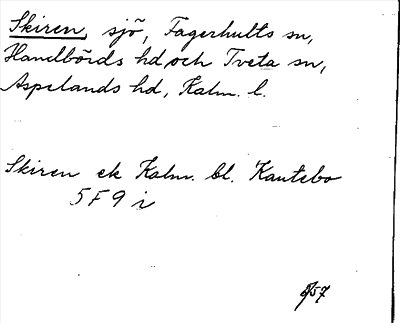 Skiren, sjö, Fagerhults sn,
Handbörds hd och Tveta sn,
Aspelands hd, Kalm. l.
Skiren ek Kalm. bl. Kantebo
5 F 9 i